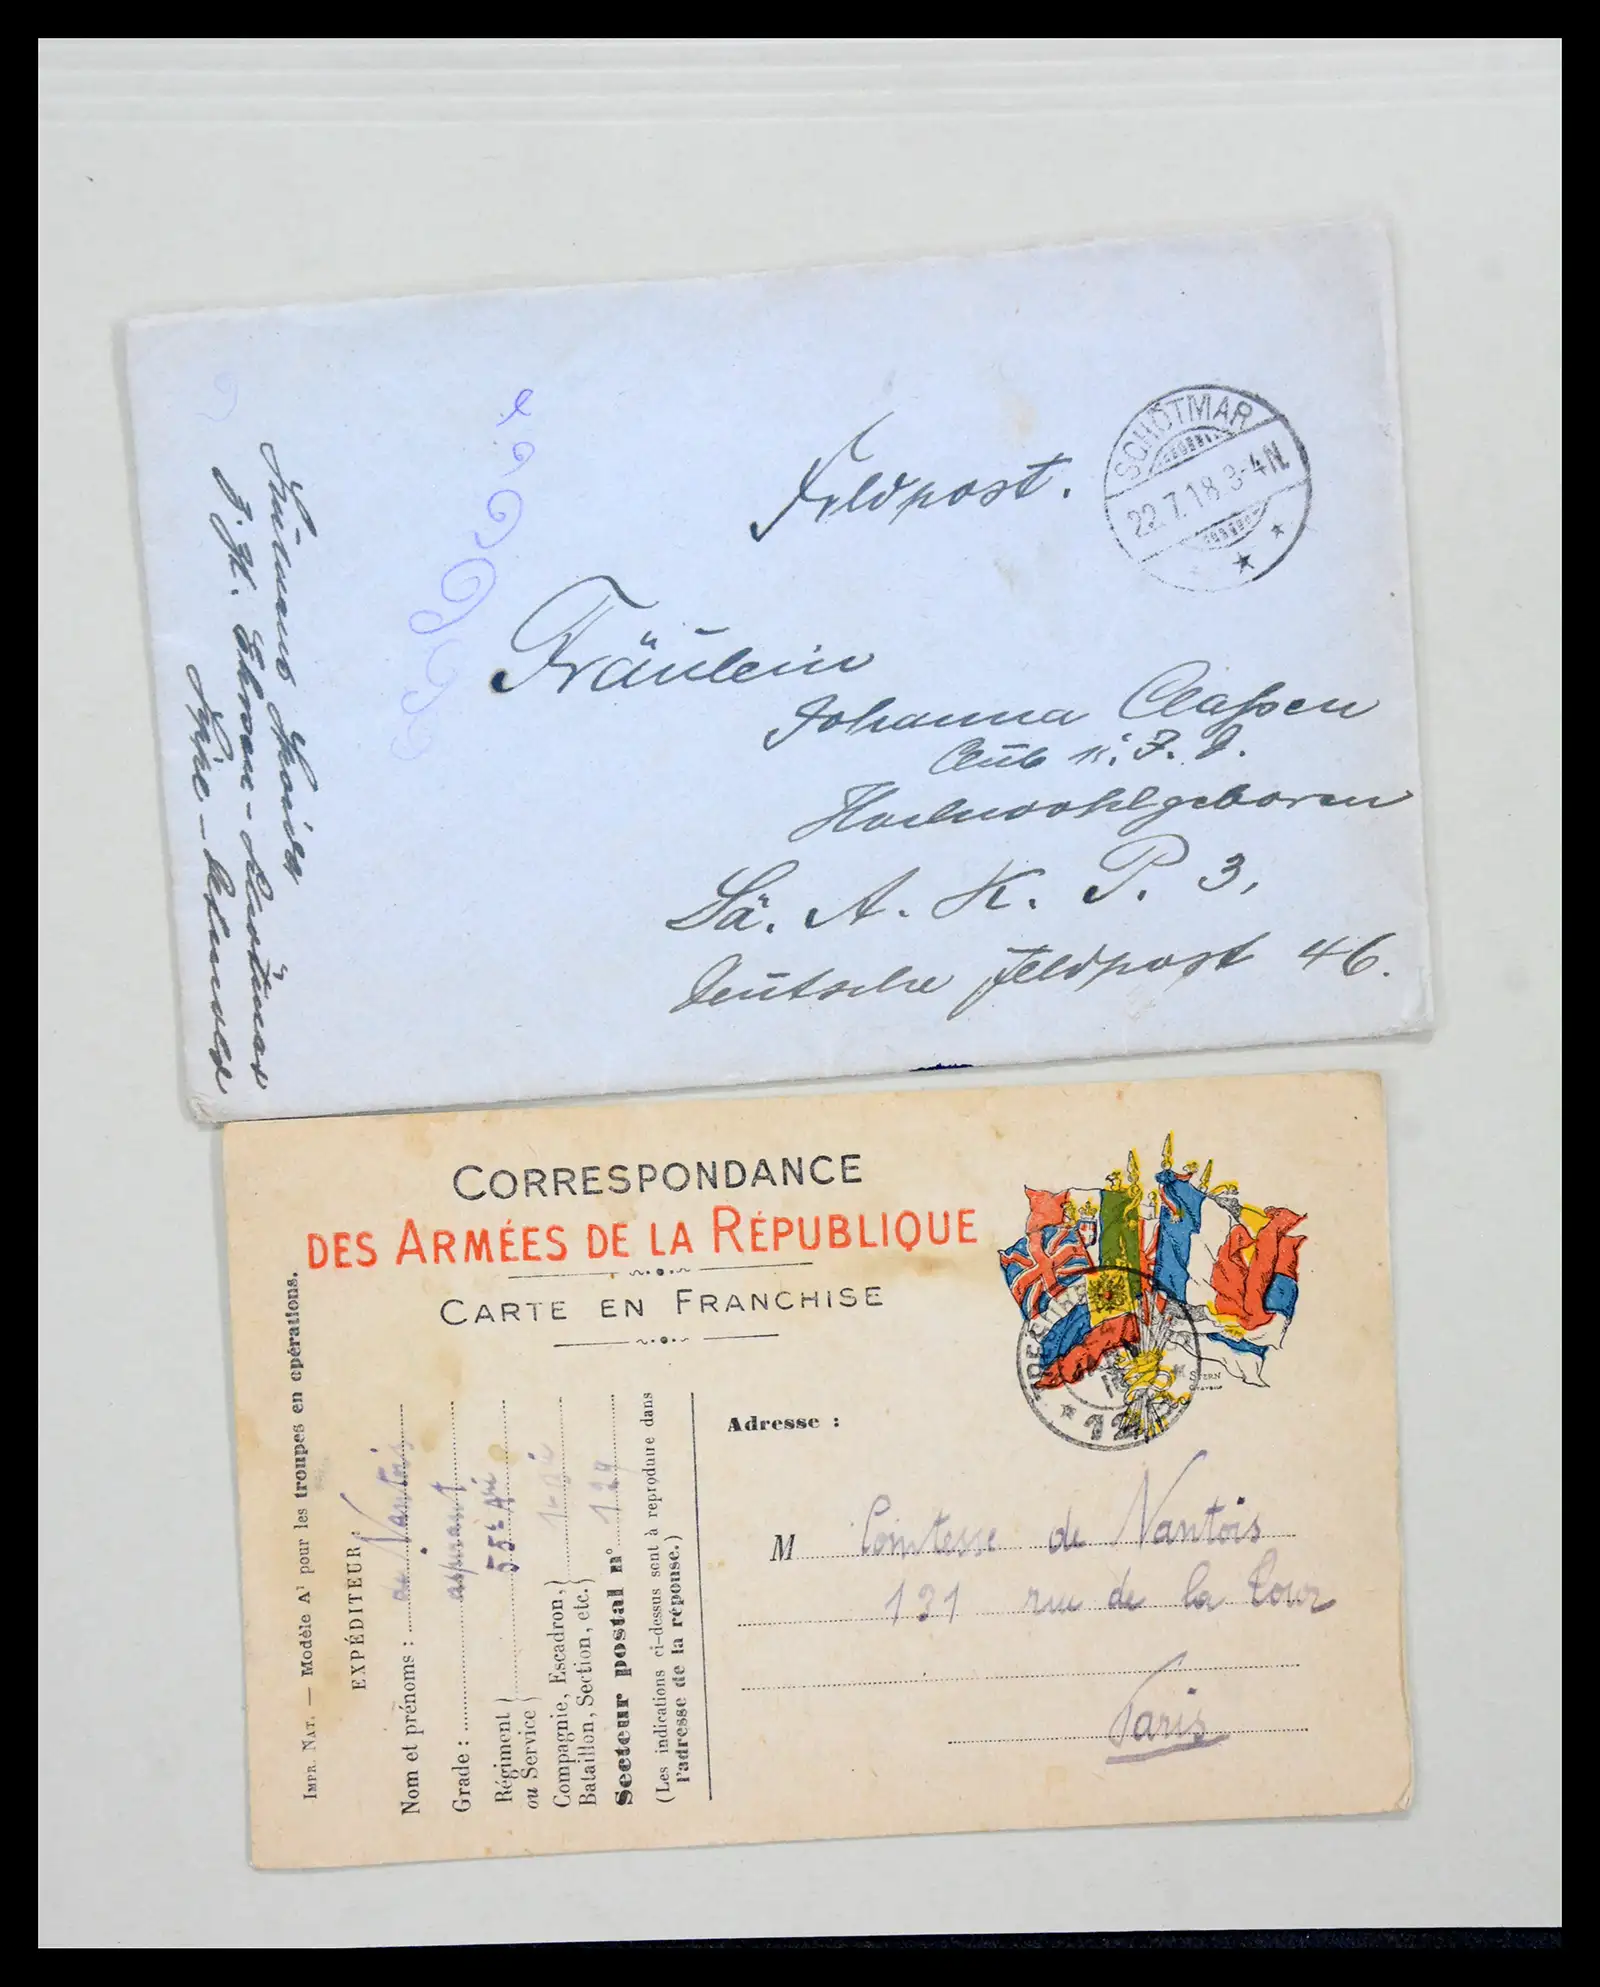 SCHÖTMAR
22.7.18.3-4N.
Feldpost.
Fräulein
Johanna Claßen
Hochwohlgeboren
Sä. A. K. P. 3,
Deutsche Feldpost 46.
CORRESPONDANCE
DES ARMÉES DE LA RÉPUBLIQUE
CARTE EN FRANCHISE
STERN
GRAVEUR
12
IMPR. NAT. — Modèle A¹ pour les troupes en opérations.
EXPÉDITEUR:
Nom et prénoms : de Nantois
Grade : aspirant
Régiment
ou Service
Compagnie, Escadron,
Bataillon, Section, etc.
Secteur postal n°
(Les indications ci-dessus sont à reproduire dans
l'adresse de la réponse.)
Adresse :
M Comtesse de Nantois
131 rue de la Tour
Paris